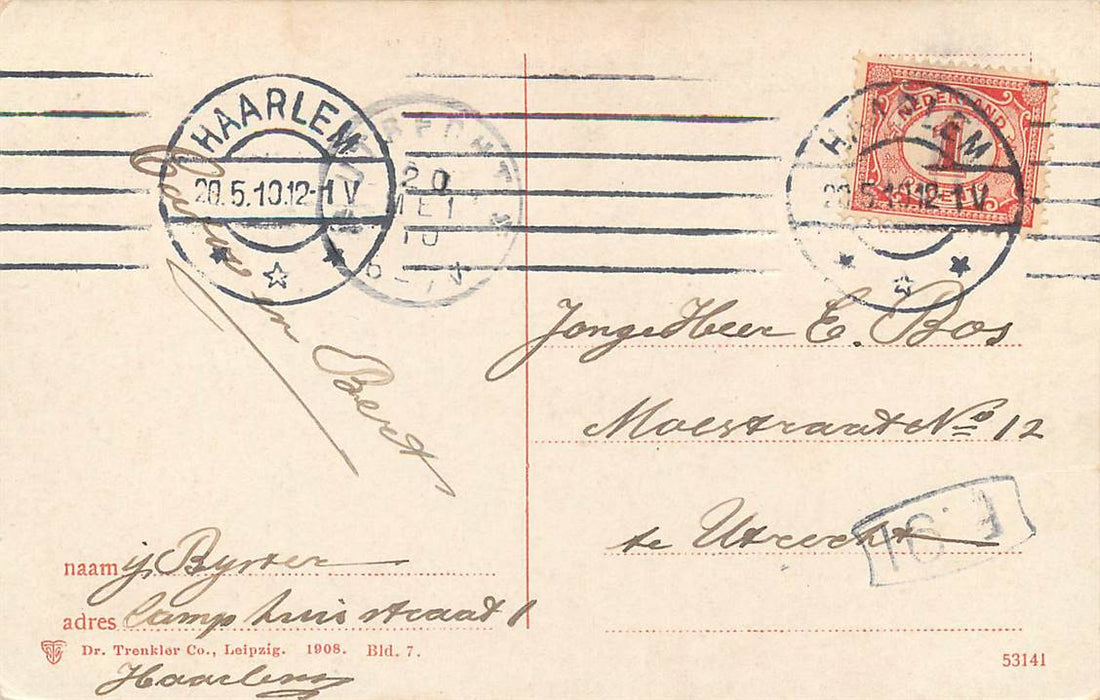 HAARLEM
20.5.10.12-1 V
UTRECHT
20
MEI
10
HAARLEM
20.5.10.12-1 V
NEDERLAND
1
CENT
en Bert
Jonge Heer E. Bos
Moestraat No 12
te Utrecht
naam
adres Camphuisstraat 1
Haarlem
Dr. Trenkler Co., Leipzig. 1908. Bld. 7.
53141